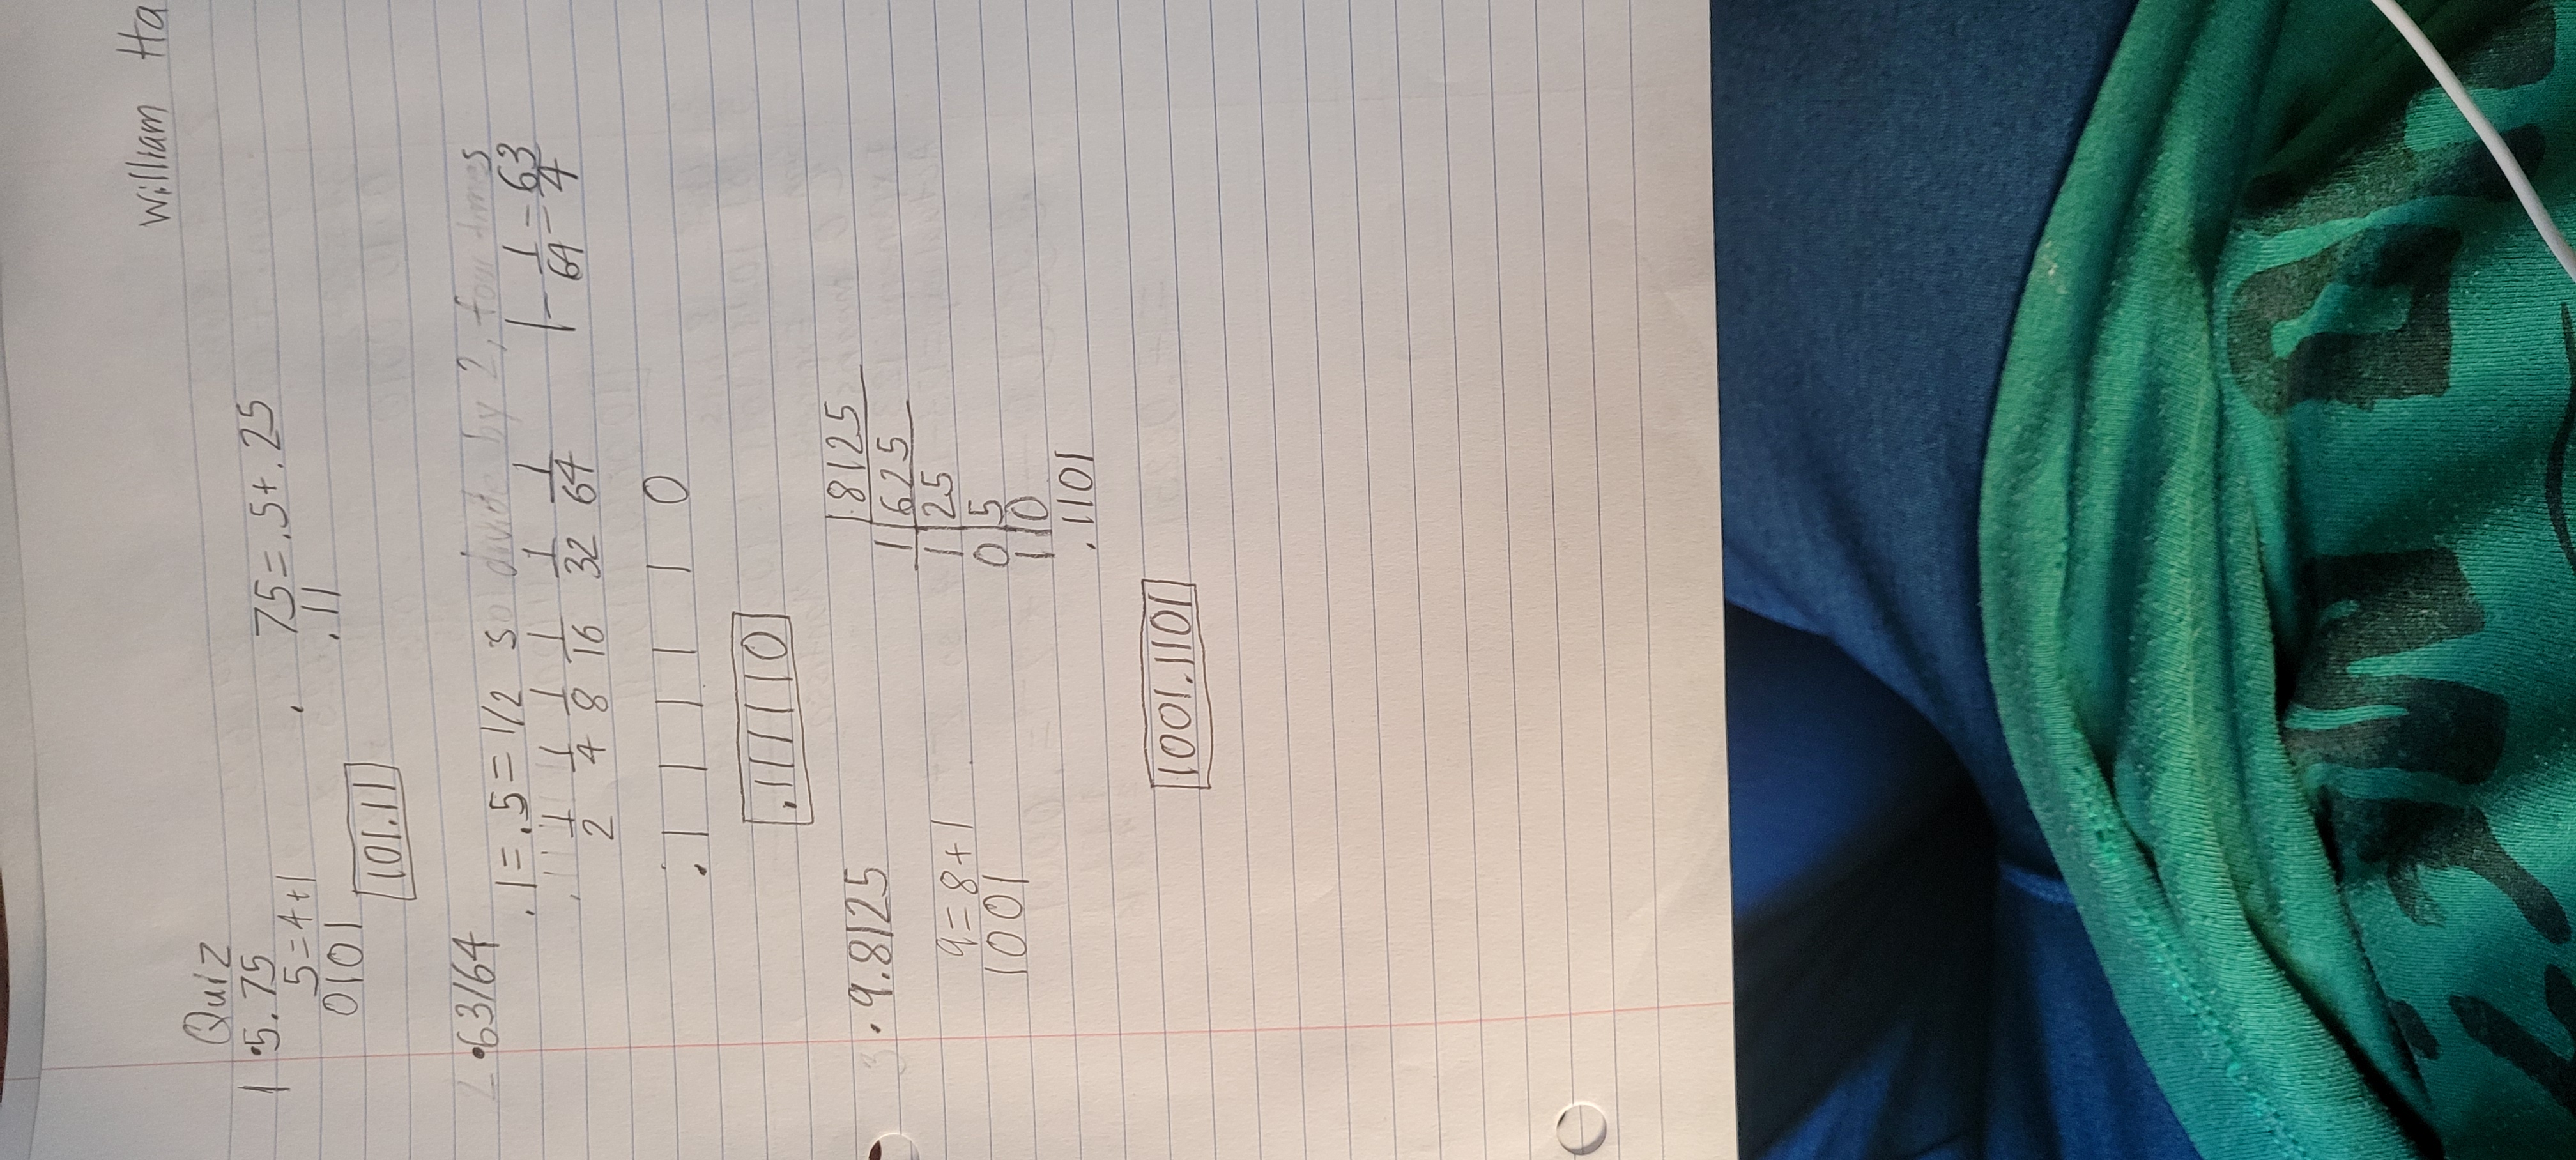 William Ha
Quiz
1 •5.75
5=4+1
0101
. 75=.5+.25
.11
101.11
2 •63/64
.1=.5=1/2 so divide by 2, four times
1/2 1/4 1/8 1/16 1/32 1/64
1-1/64=63/4
.1 1 1 1 1 0
.111110
3 •9.8125
9=8+1
1001
|.8125
1|625
1|25
0|5
1|0
.1101
1001.1101